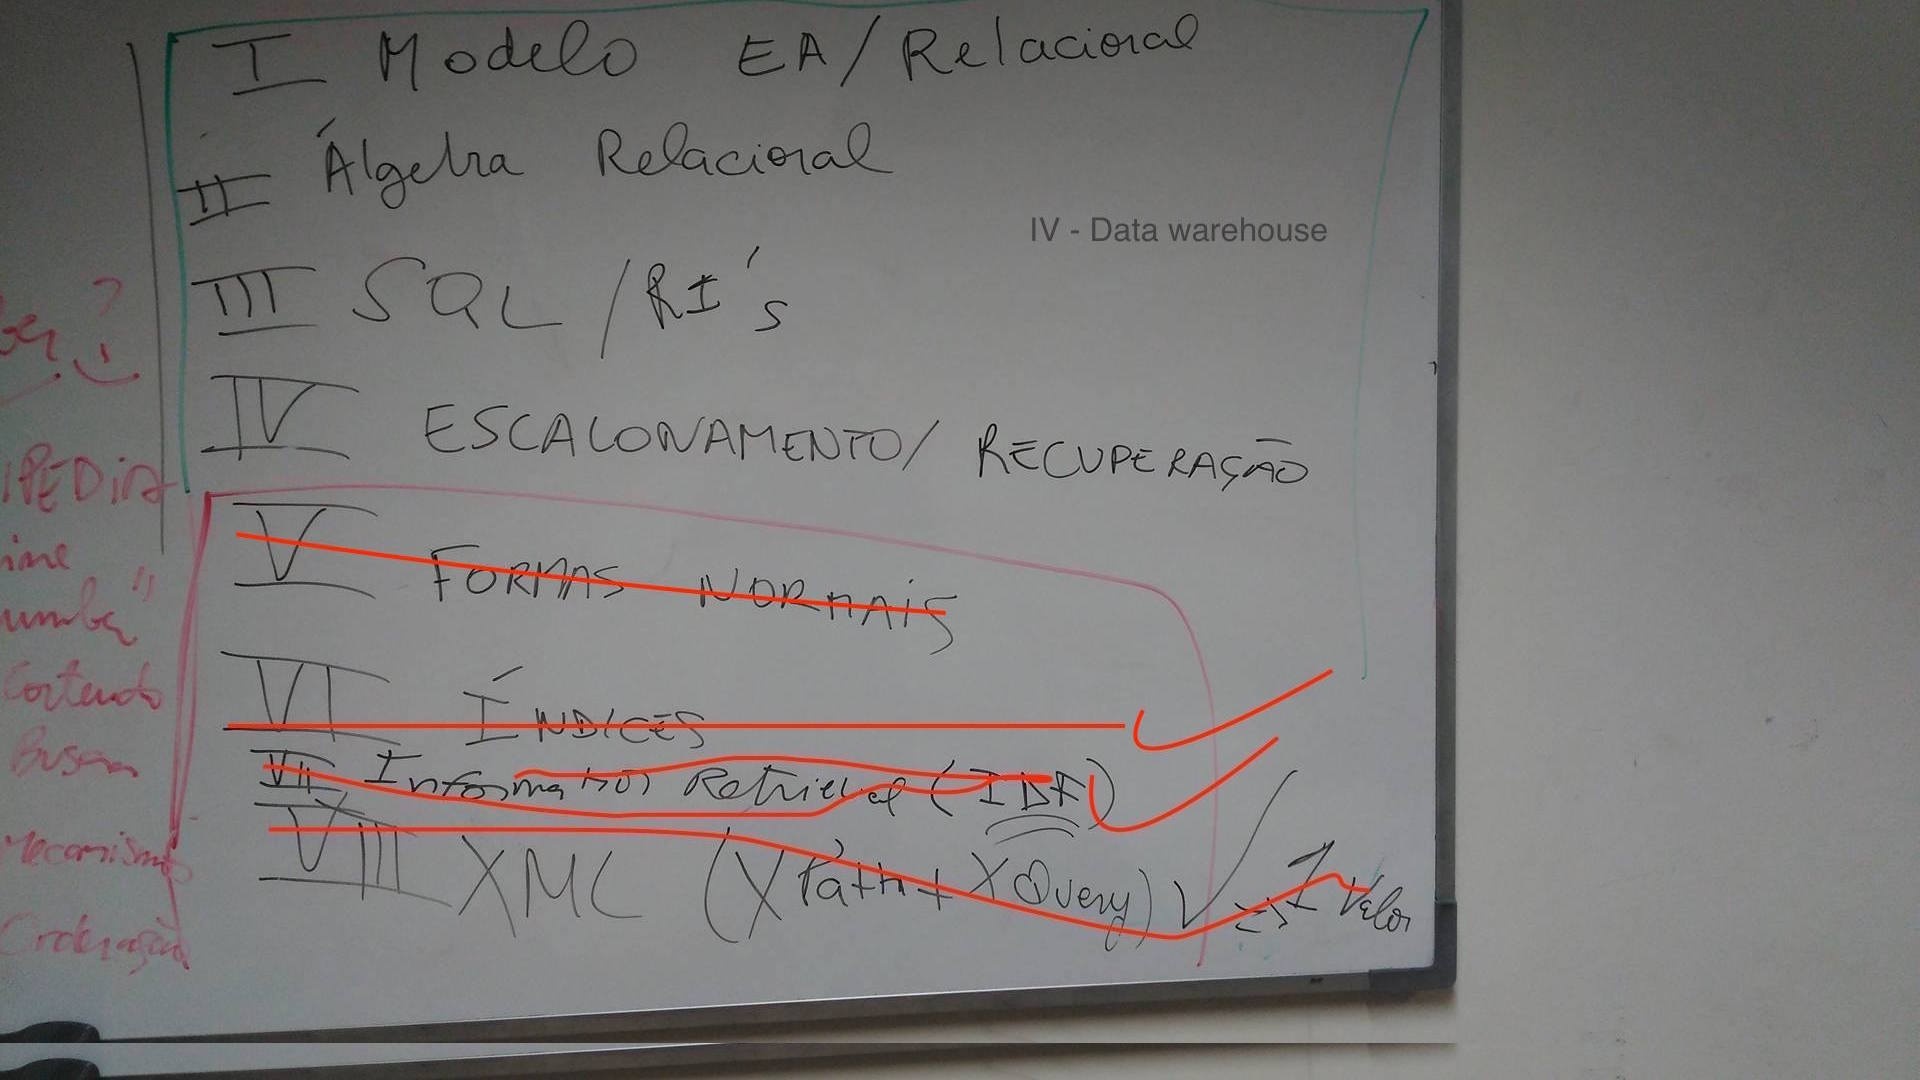 I Modelo EA/Relacional
II Álgebra Relacional
IV - Data warehouse
III SQL /RI's
IV ESCALONAMENTO/ RECUPERAÇÃO
V FORMAS NORMAIS
VI ÍNDICES
VII Information Retrieval (IDF)
VIII XML (XPath + XQuery) V => 1 Valor
?
IPEDiA
ime
umba"
Conteudo
Busca
Mecanismo
Ordenação